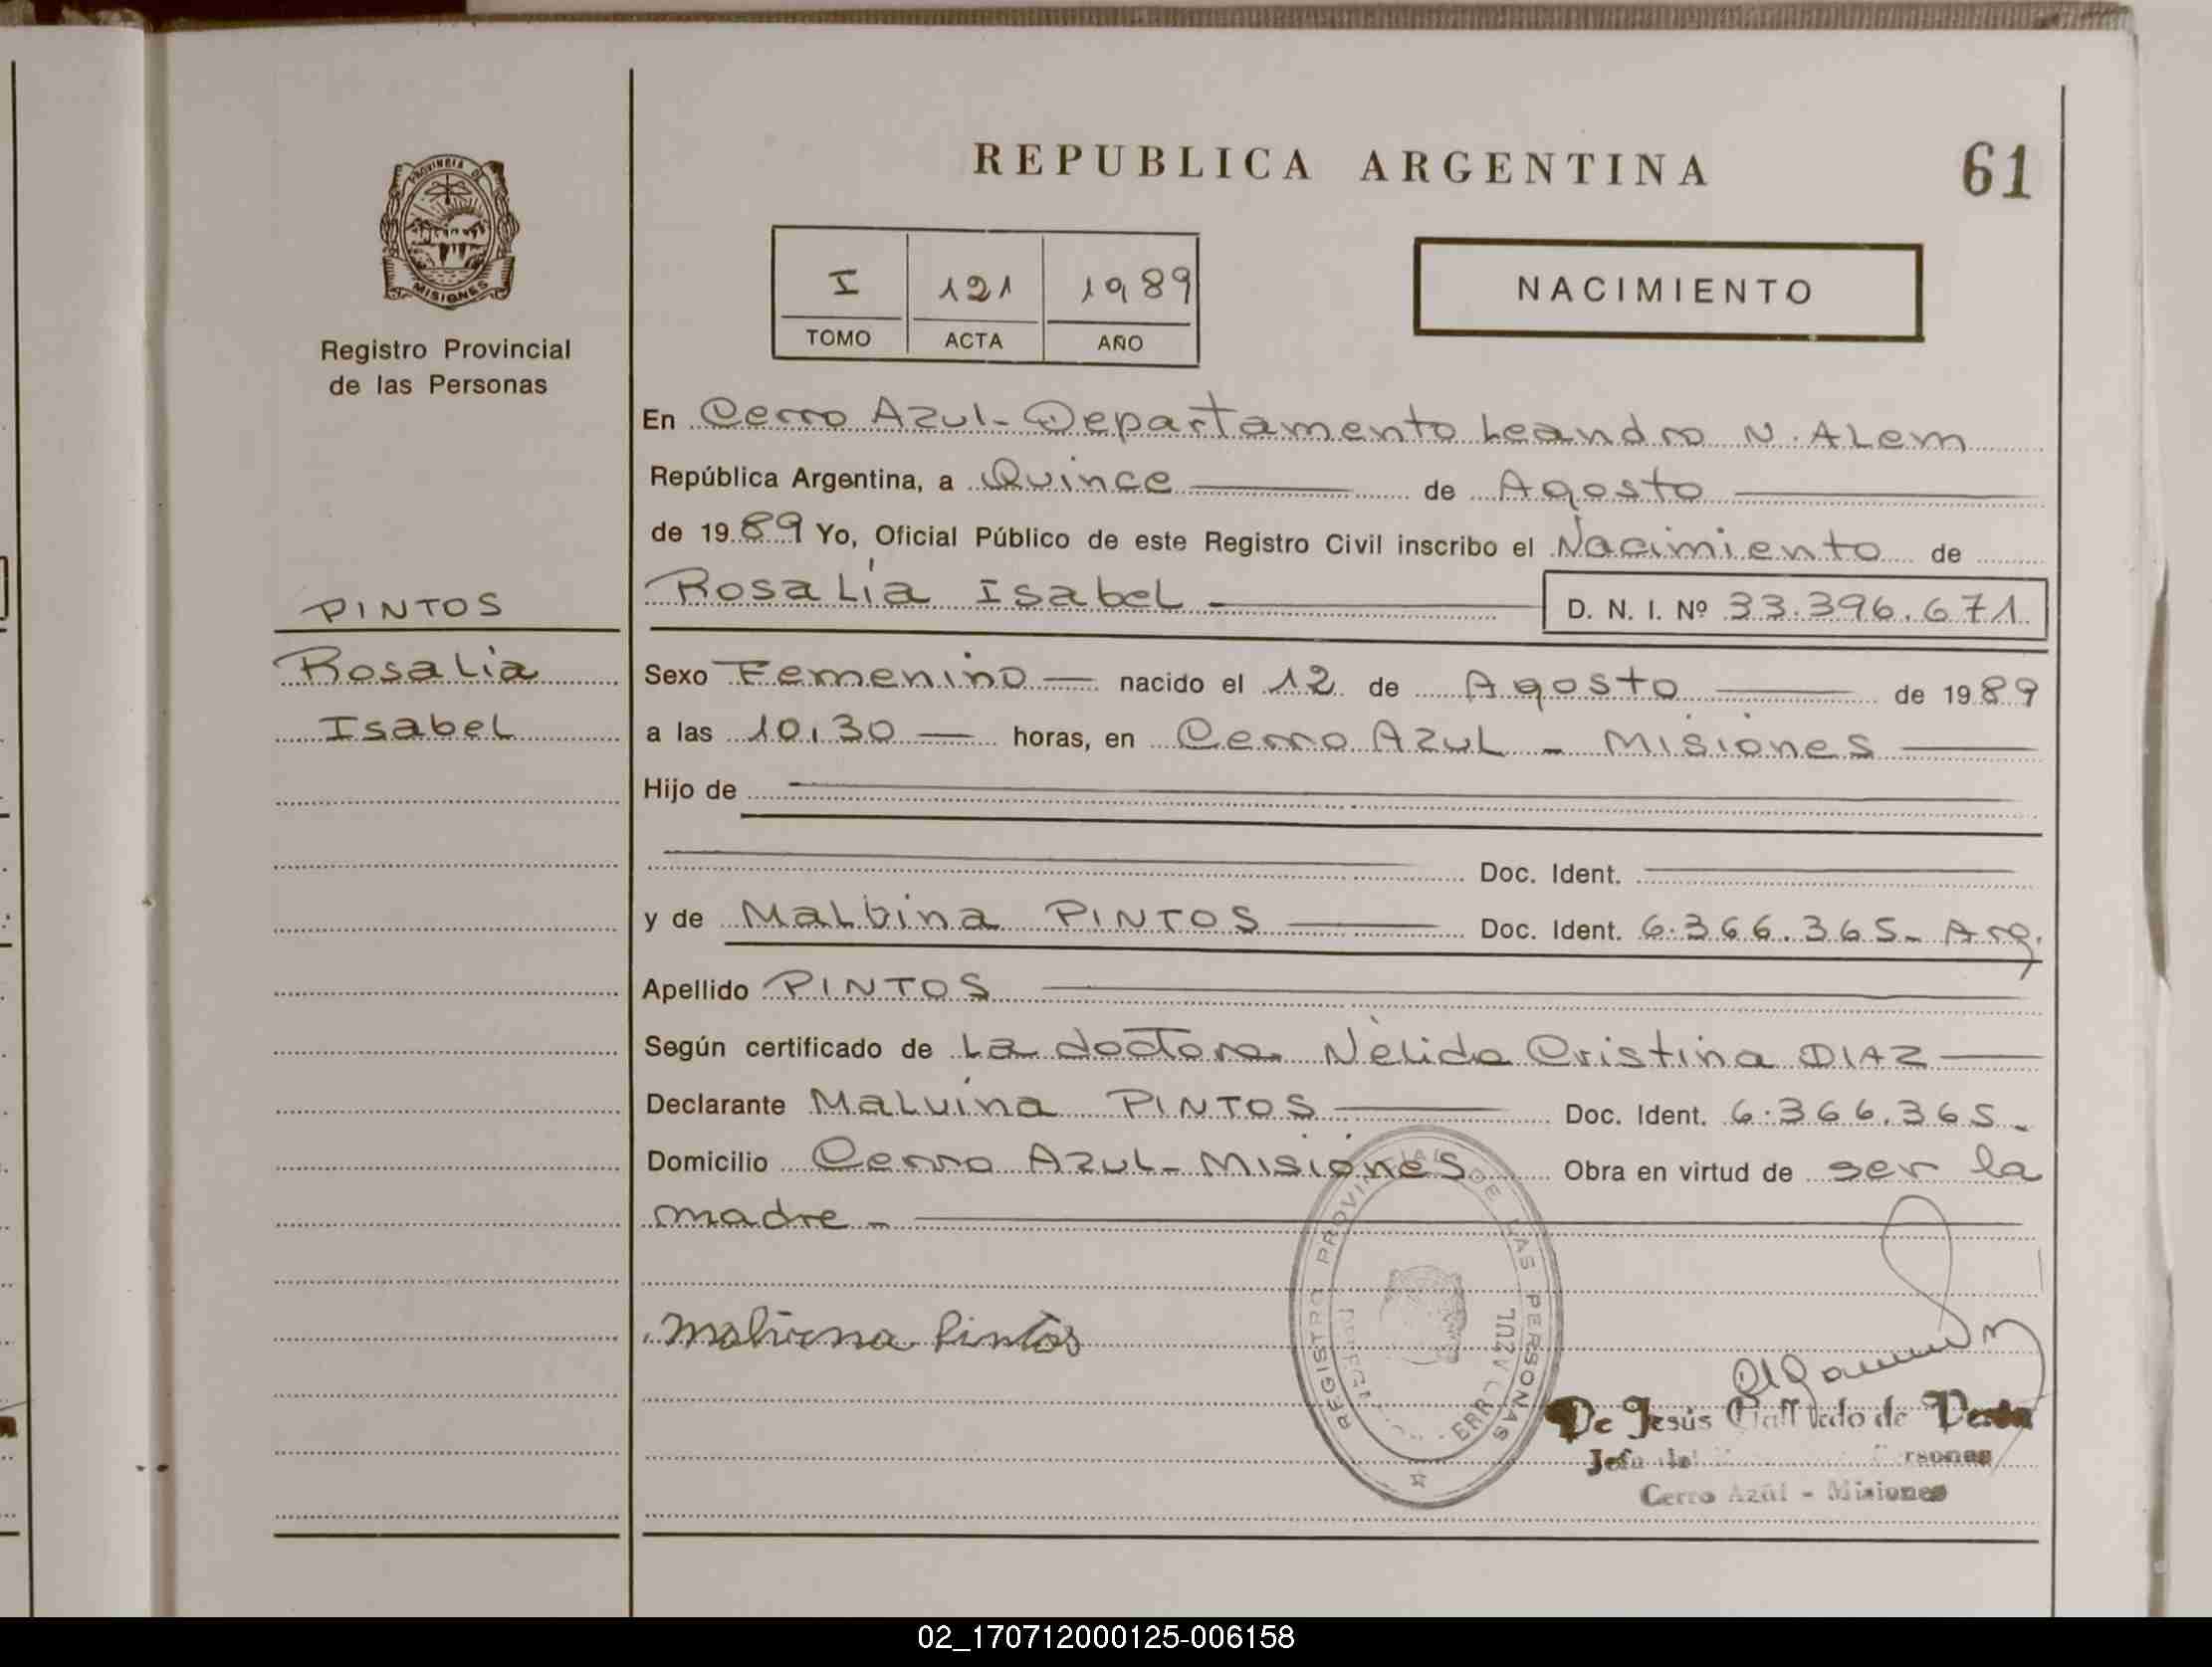 PROVINCIA DE
MISIONES
Registro Provincial
de las Personas
PINTOS
Rosalia
Isabel
REPUBLICA ARGENTINA
61
I 121 1989
TOMO ACTA AÑO
NACIMIENTO
En Cerro Azul - Departamento Leandro N. Alem
República Argentina, a Quince de Agosto
de 1989 Yo, Oficial Público de este Registro Civil inscribo el Nacimiento de
Rosalía Isabel D. N. I. Nº 33.396.671
Sexo Femenino nacido el 12 de Agosto de 1989
a las 10,30 horas, en Cerro Azul - Misiones
Hijo de
Doc. Ident.
y de Malvina PINTOS Doc. Ident. 6.366.365- Arg.
Apellido PINTOS
Según certificado de La doctora Nélida Cristina DIAZ
Declarante Malvina PINTOS Doc. Ident. 6.366.365-
Domicilio Cerro Azul - Misiones Obra en virtud de ser la
madre -
Malvina Pintos
REGISTRO PROVINCIAL DE LAS PERSONAS
De Jesús de
Jefa
Cerro Azul - Misiones
02_170712000125-006158